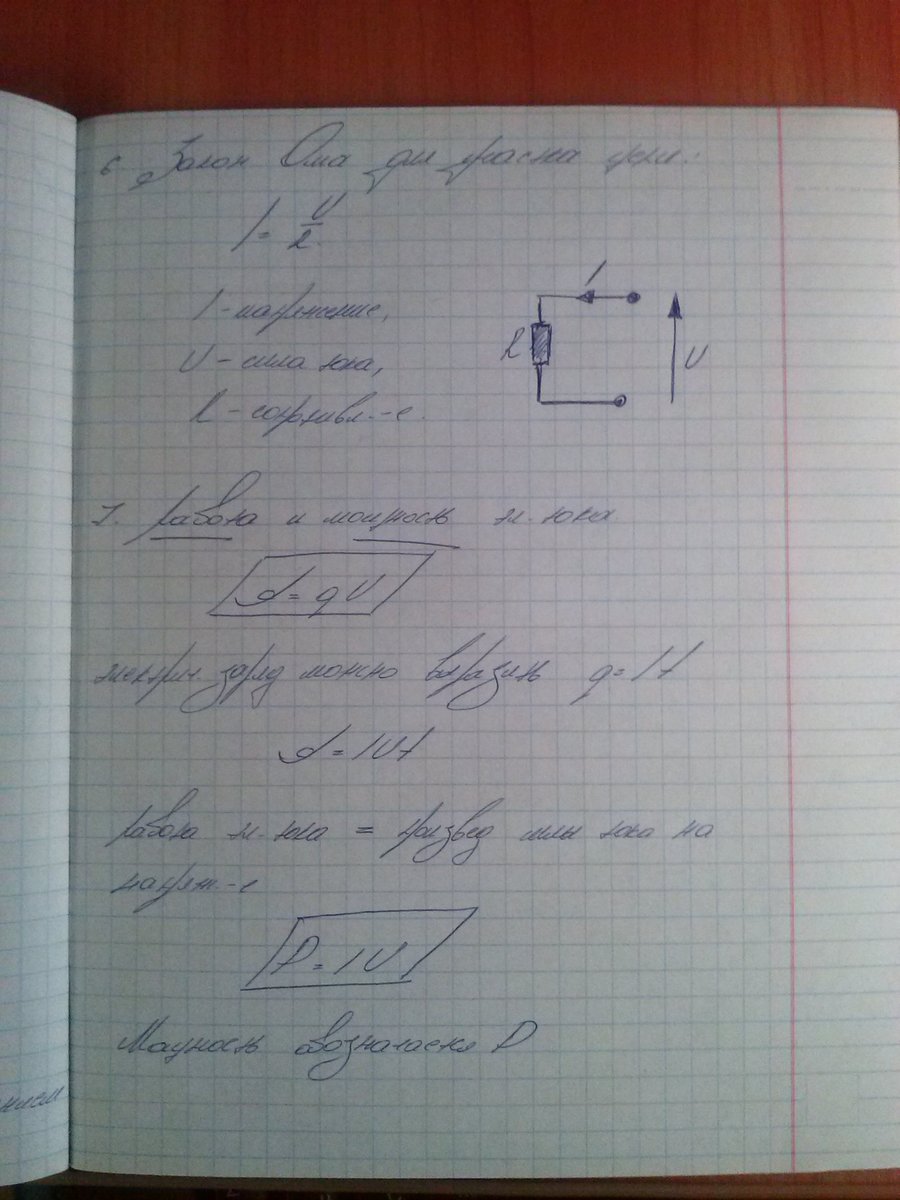 6 Закон Ома для участка цепи:
I = U/R
I - напряжение,
U - сила тока,
R - сопротивл.-е.
I
R
U
7. Работа и мощность эл. тока.
A = qU
электрич. заряд можно выразить q = It
A = IUt
работа эл. тока = произвед силы тока на
напряж-е
P = IU
Мощность обозначается P
нием